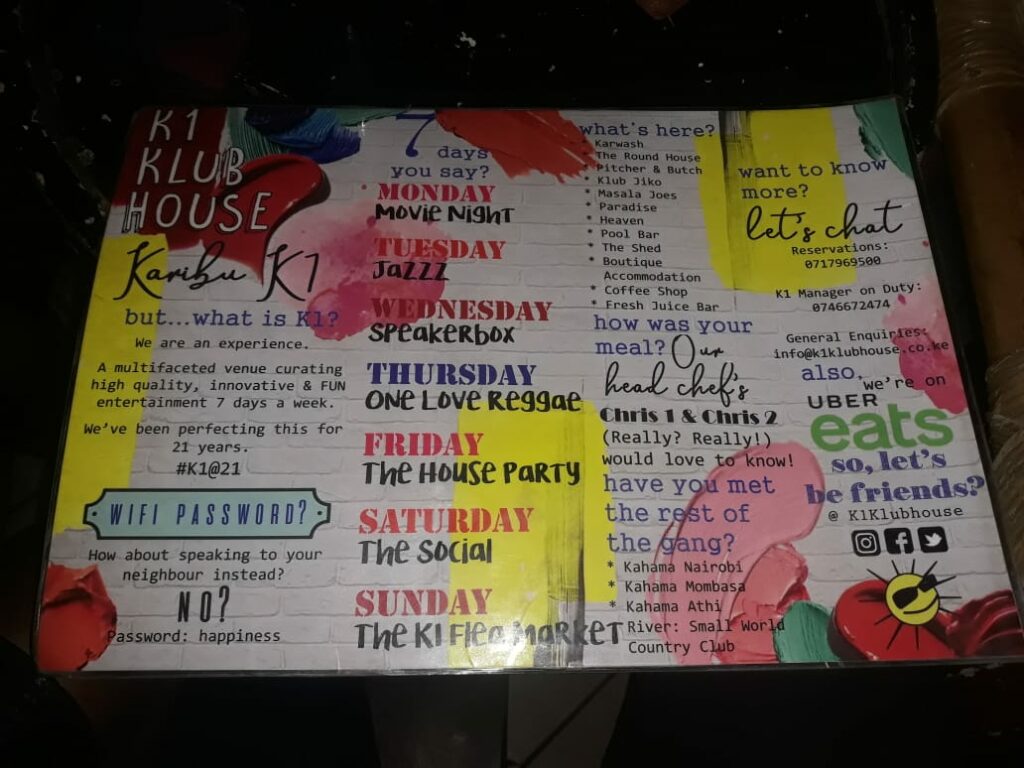 K1
KLUB
HOUSE
Karibu K1
but...what is K1?
We are an experience.
A multifaceted venue curating
high quality, innovative & FUN
entertainment 7 days a week.
We've been perfecting this for
21 years.
#K1@21
WIFI PASSWORD?
How about speaking to your
neighbour instead?
NO?
Password: happiness
7 days
you say?
MONDAY
Movie Night
TUESDAY
Jazzz
WEDNESDAY
Speakerbox
THURSDAY
One Love Reggae
FRIDAY
The House Party
SATURDAY
The Social
SUNDAY
The K1 Flea Market
what's here?
* Karwash
* The Round House
* Pitcher & Butch
* Klub Jiko
* Masala Joes
* Paradise
* Heaven
* Pool Bar
* The Shed
* Boutique
Accommodation
* Coffee Shop
* Fresh Juice Bar
how was your
meal? Our
head chef's
Chris 1 & Chris 2
(Really? Really!)
would love to know!
have you met
the rest of
the gang?
* Kahama Nairobi
* Kahama Mombasa
* Kahama Athi
River: Small World
Country Club
want to know
more?
let's chat
Reservations:
0717969500
K1 Manager on Duty:
0746672474
General Enquiries:
info@k1klubhouse.co.ke
also, we're on
UBER
eats
so, let's
be friends?
@ K1Klubhouse